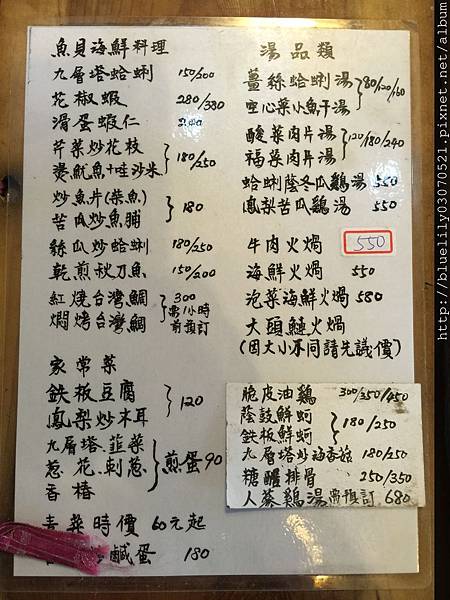 魚貝海鮮料理
九層塔蛤蜊 150/200
花椒蝦 280/380
滑蛋蝦仁 200
芹菜炒花枝
燙魷魚+哇沙米 180/250
炒魚片(菜魚)
苦瓜炒魚脯 180
絲瓜炒蛤蜊 180/250
乾煎秋刀魚 150/200
紅燒台灣鯛
燜烤台灣鯛 300 需1小時前預訂
家常菜
鉄板豆腐
鳳梨炒木耳 120
九層塔、韮菜
蔥、花、刺蔥
香椿 煎蛋90
青菜時價 60元起
鹹蛋 180
湯品類
薑絲蛤蜊湯
空心菜小魚干湯 80/120/160
酸菜肉片湯
福菜肉片湯 120/180/240
蛤蜊蔭冬瓜鷄湯 550
鳳梨苦瓜鷄湯 550
牛肉火焗 550
海鮮火焗 550
泡菜海鮮火焗 580
大頭鰱火焗
(因大小不同請先議價)
脆皮油鷄 300/350/450
蔭鼓鮮蚵
鉄板鮮蚵 180/250
九層塔炒海香菇 180/250
糖醋排骨 250/350
人蔘鷄湯需預訂 680
http://bluelily03070521.pixnet.net/album